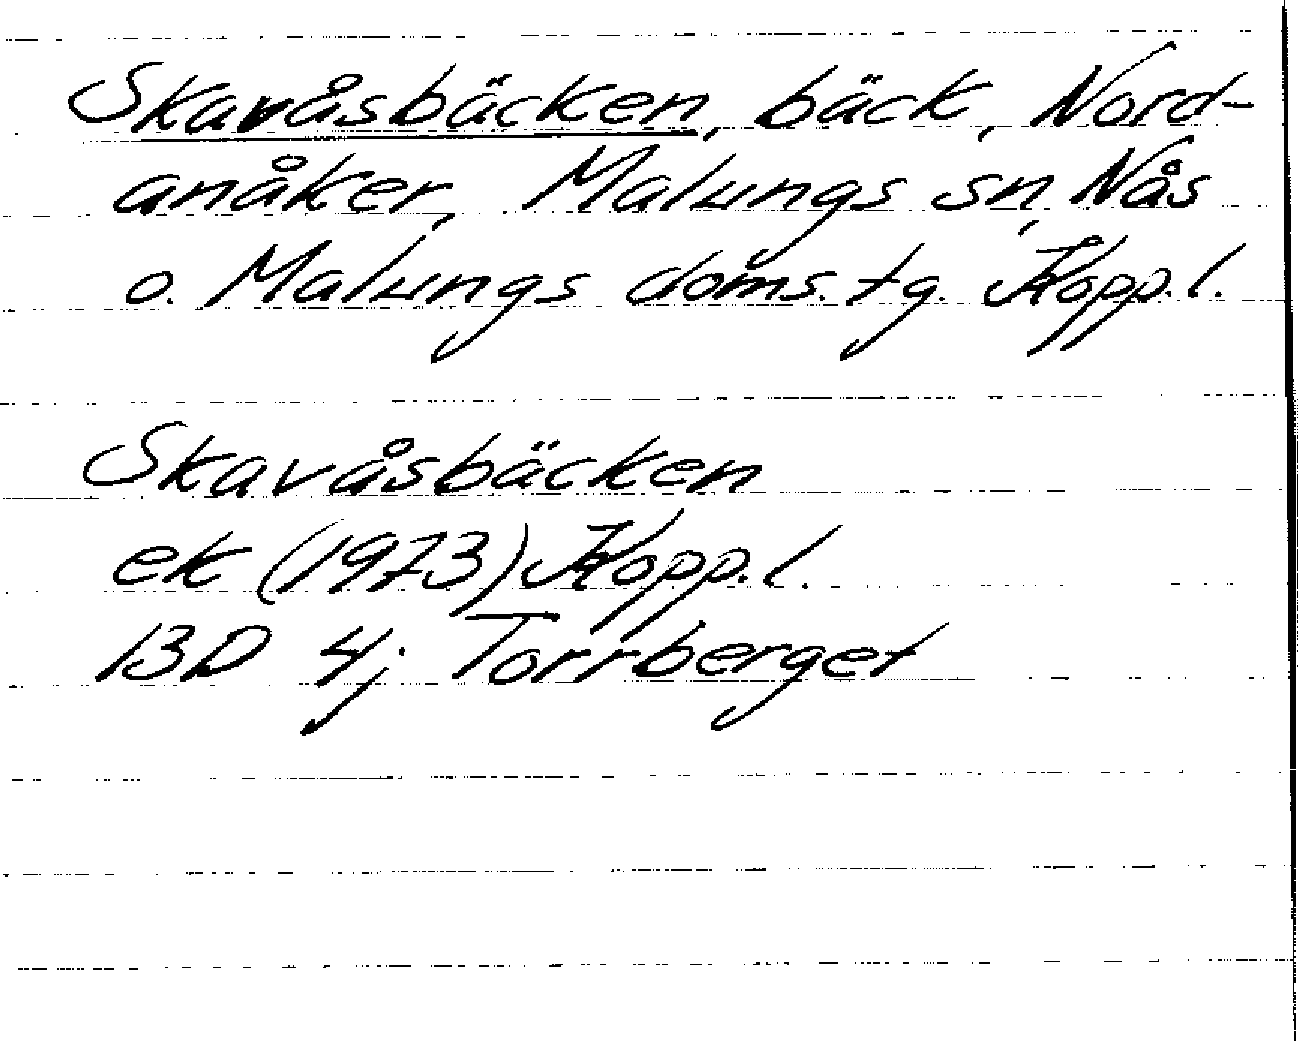 Skavåsbäcken, bäck, Nord-
anåker, Malungs sn, Nås
o. Malungs doms. tg. Kopp. l.
Skavåsbäcken
ek (1973) Kopp. l.
13D 4j Torrberget